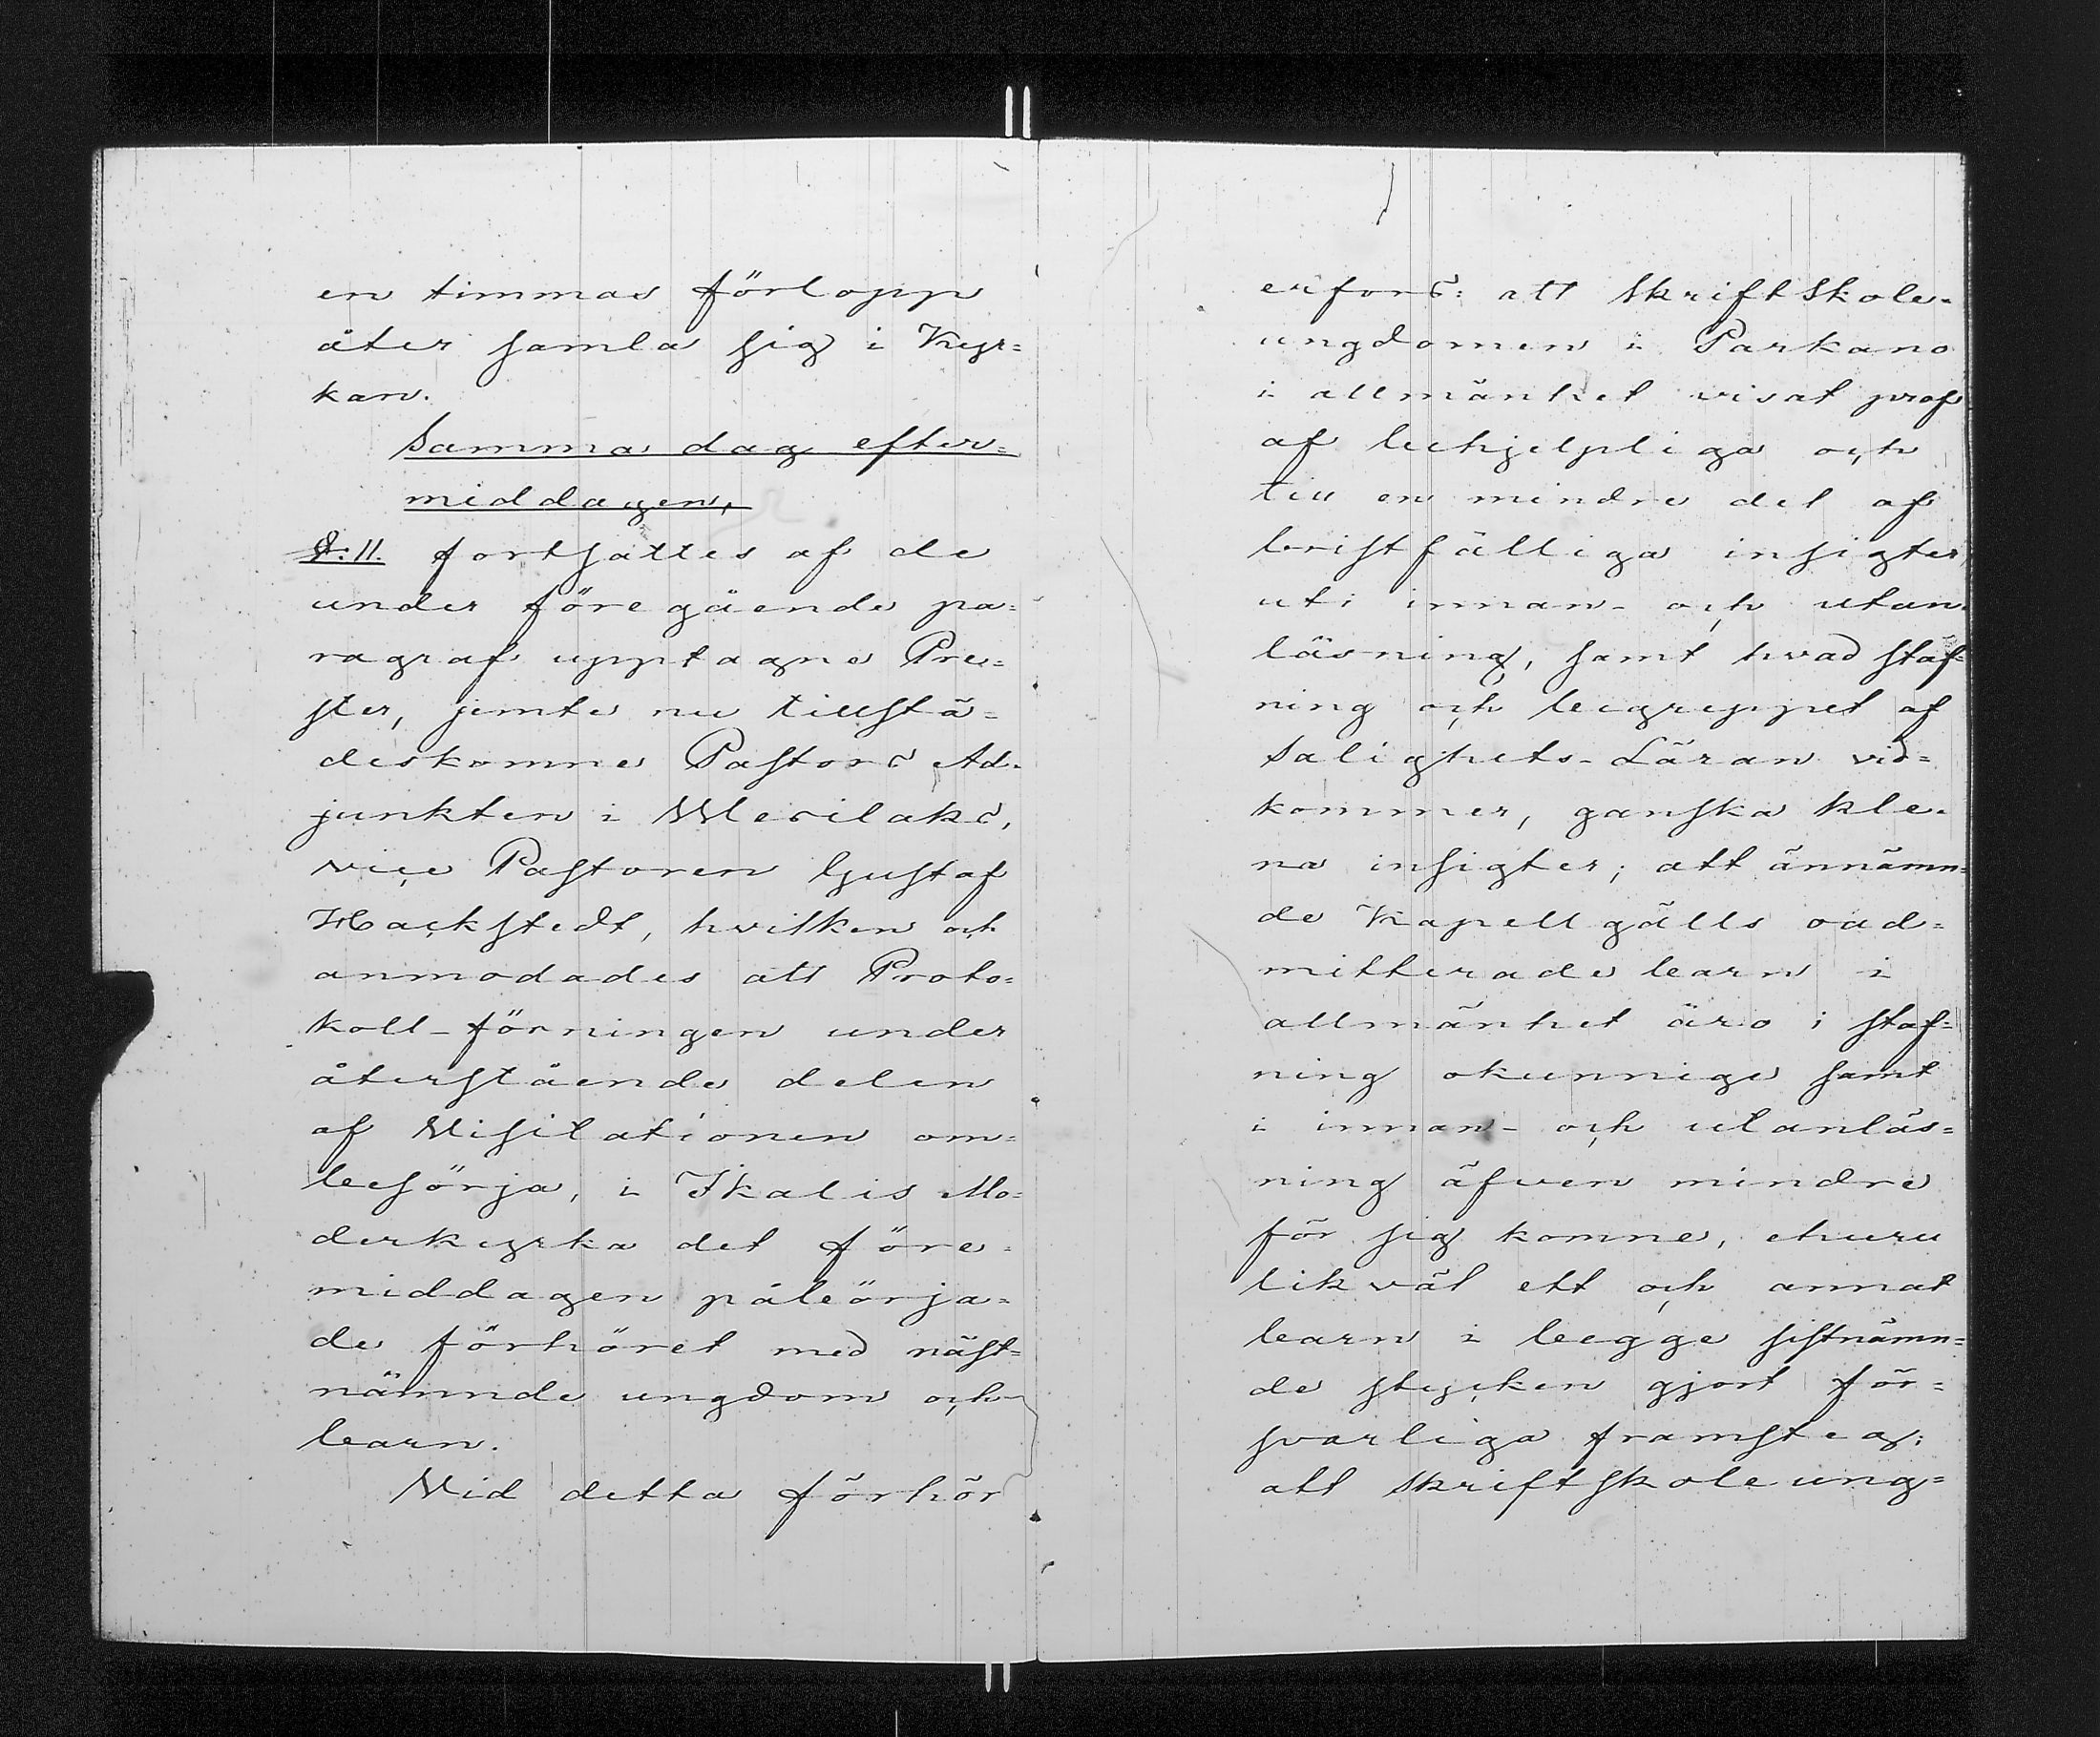 en timmas förlopp
åter samla sig i Kyr=
kan.
Samma dag efter=
middagen,
§: 11. fortsattes af de
under föregående pa=
ragraf upptagne Pre=
ster, jemte nu tillstä=
deskomne Pastors Ad=
junkten i Wesilaks,
vice Pastoren Gustaf
Hackstedt, hvilken och
anmodades att Proto=
koll-förningen under
återstående delen
af Visitationen om=
besörja, i Ikalis Mo=
derkyrka det före=
middagen påbörja=
de förhöret med näst=
nämnde ungdom och
barn.
Vid detta förhör
erfors: att Skriftskole=
ungdomen i Parkano
i allmänhet visat prof
af behjelpliga och
till en mindre del af
bristfälliga insigter
uti innan- och utan=
läsning, samt hvad staf=
ning och begreppet af
Salighets-Läran vid=
kommer, ganska kle=
na insigter; att ännämn=
de Kapellgälls oad=
mitterade barn i
allmänhet äro i staf=
ning okunnige samt
i innan- och utanläs=
ning äfven mindre
för sig komne, ehuru
likväl ett och annat
barn i begge sistnämn=
de stycken gjort för=
svarliga framsteg;
att Skriftskoleung=